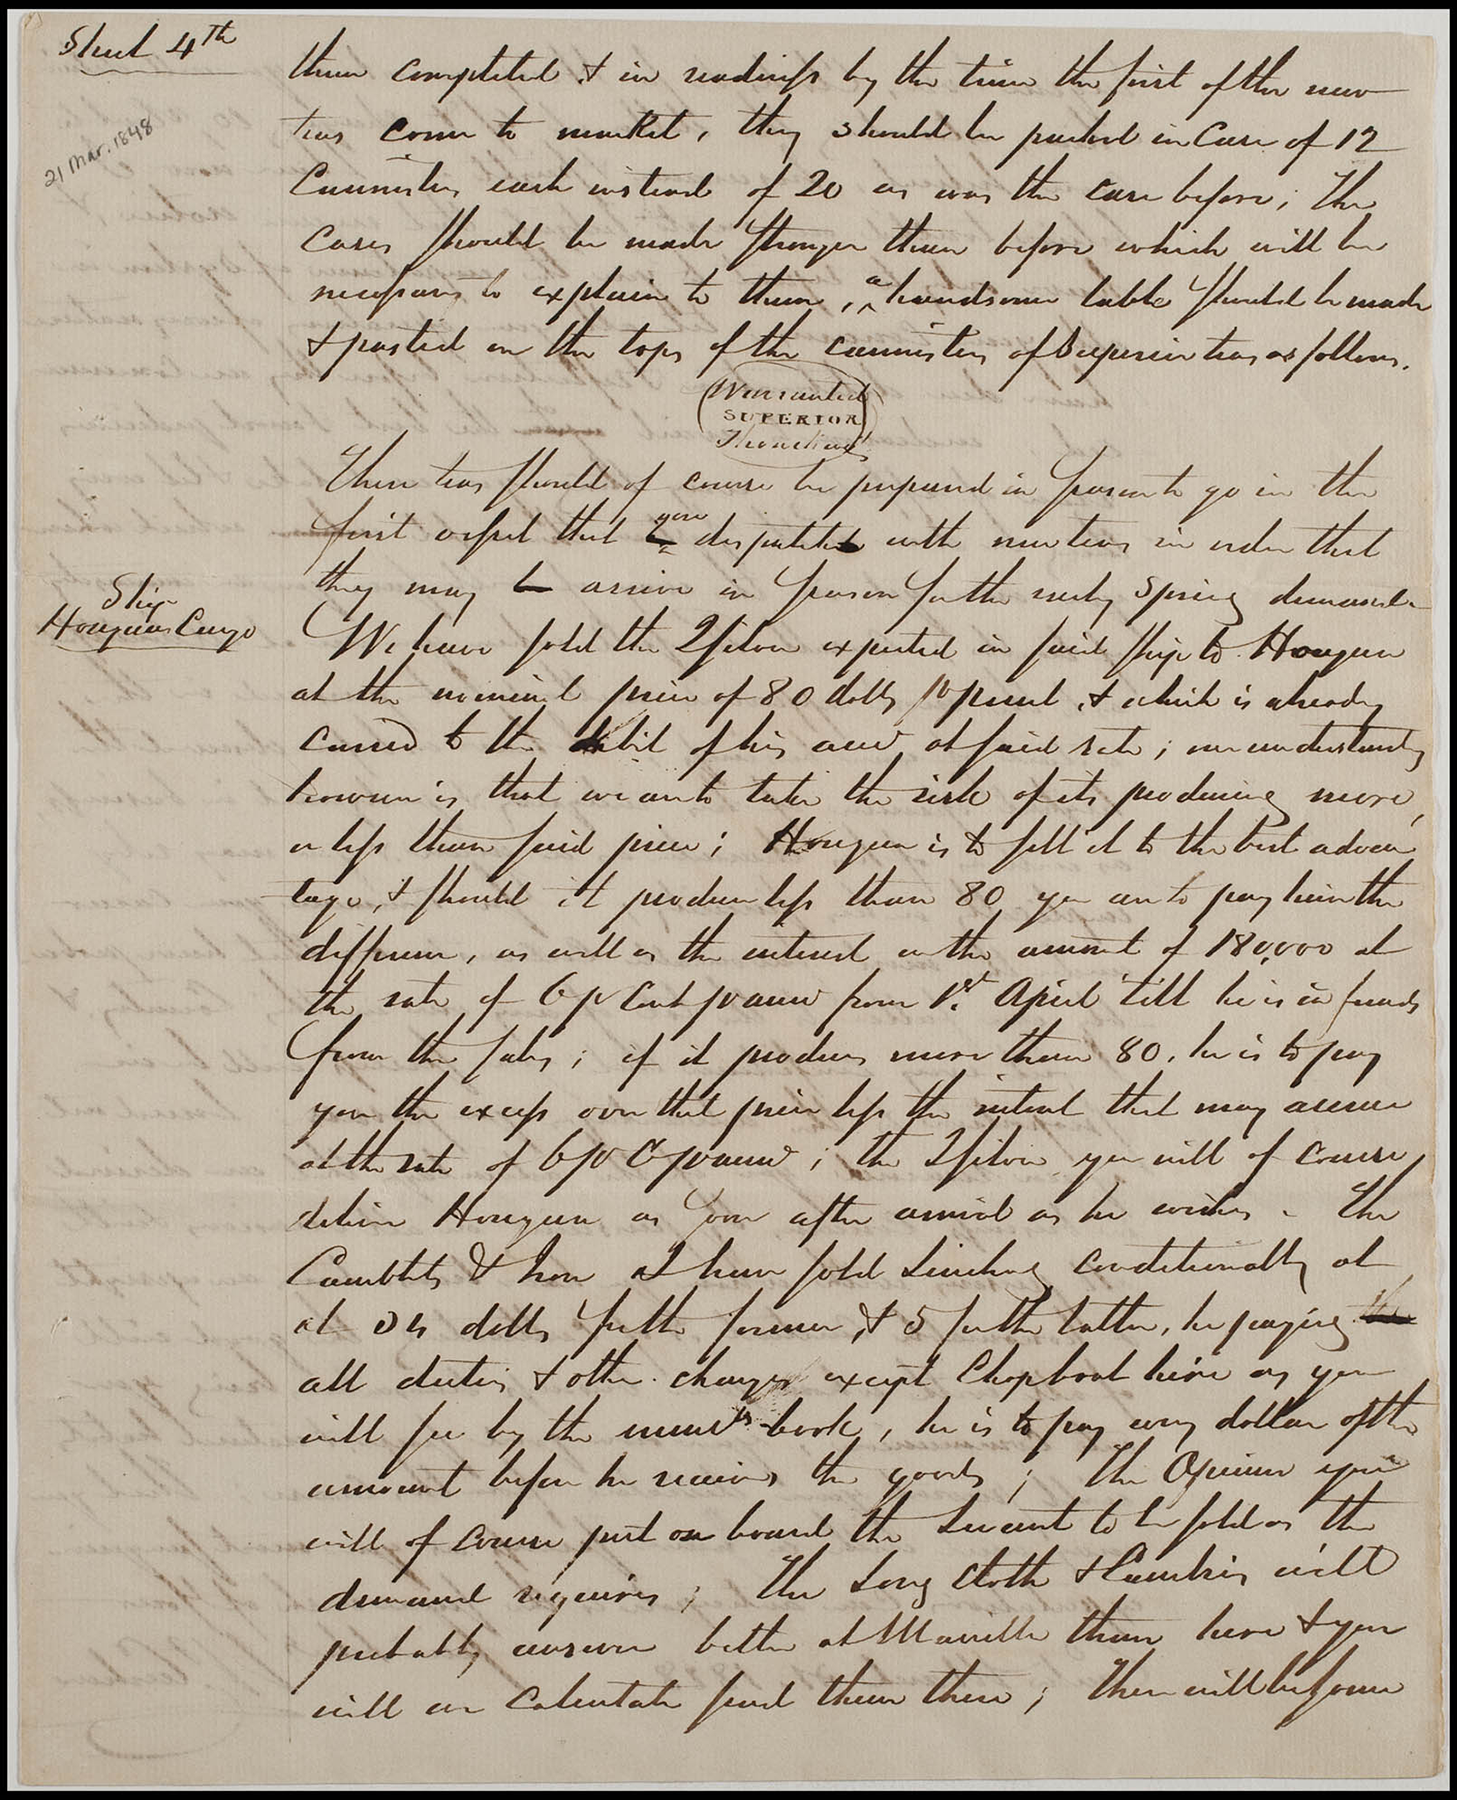 Sheet 4th
21 Mar. 1848
them completed & in readiness by the time the first of the new
teas come to market, they should be packed in Cases of 12
Cannisters each instead of 20 as was the case before; The
Cases should be made stronger than before which will be
necessary to explain to them, a handsome lable should be made
& pasted on the tops of the cannisters of Superior teas as follows.
Warranted
SUPERIOR
These teas should of course be prepared in season to go in the
first vessel that you dispatch with new teas in order that
they may arrive in season for the early Spring demand
Ship
Houquas Cargo
We have sold the Qsilver expected in said ship to Houqua
at the nominal price of 80 dolls p pecul, & which is already
carried to the debit of his acct at said rate; our understanding
however is that we are to take the risk of its producing more,
or less than said price; Houqua is to sell it to the best advan
tage, & should it produce less than 80 you are to pay him the
difference, as well as the interest on the amount of 180,000 at
the rate of 6 p Cent p annum from 1st April till he is in funds
from the sales; if it produces more than 80, he is to pay
you the excess over that price less the interest that may accrue
at the rate of 6 p C p annum; the Qsilver you will of course
deliver Houqua as soon after arrival as he wishes. The
Camblets & Iron I have sold conditionally at
at dolls for the former, & 5 for the latter, he paying
all duties & other charges except Chopboat hire as you
will see by the book, he is to pay every dollar of the
amount before he receives the goods; The Opium you
will of course put on board the Levant to be sold as the
demand requires; The Long Cloth & Cambrics will
probably answer better at Manilla than here & you
will on Calculation send them there; There will be some